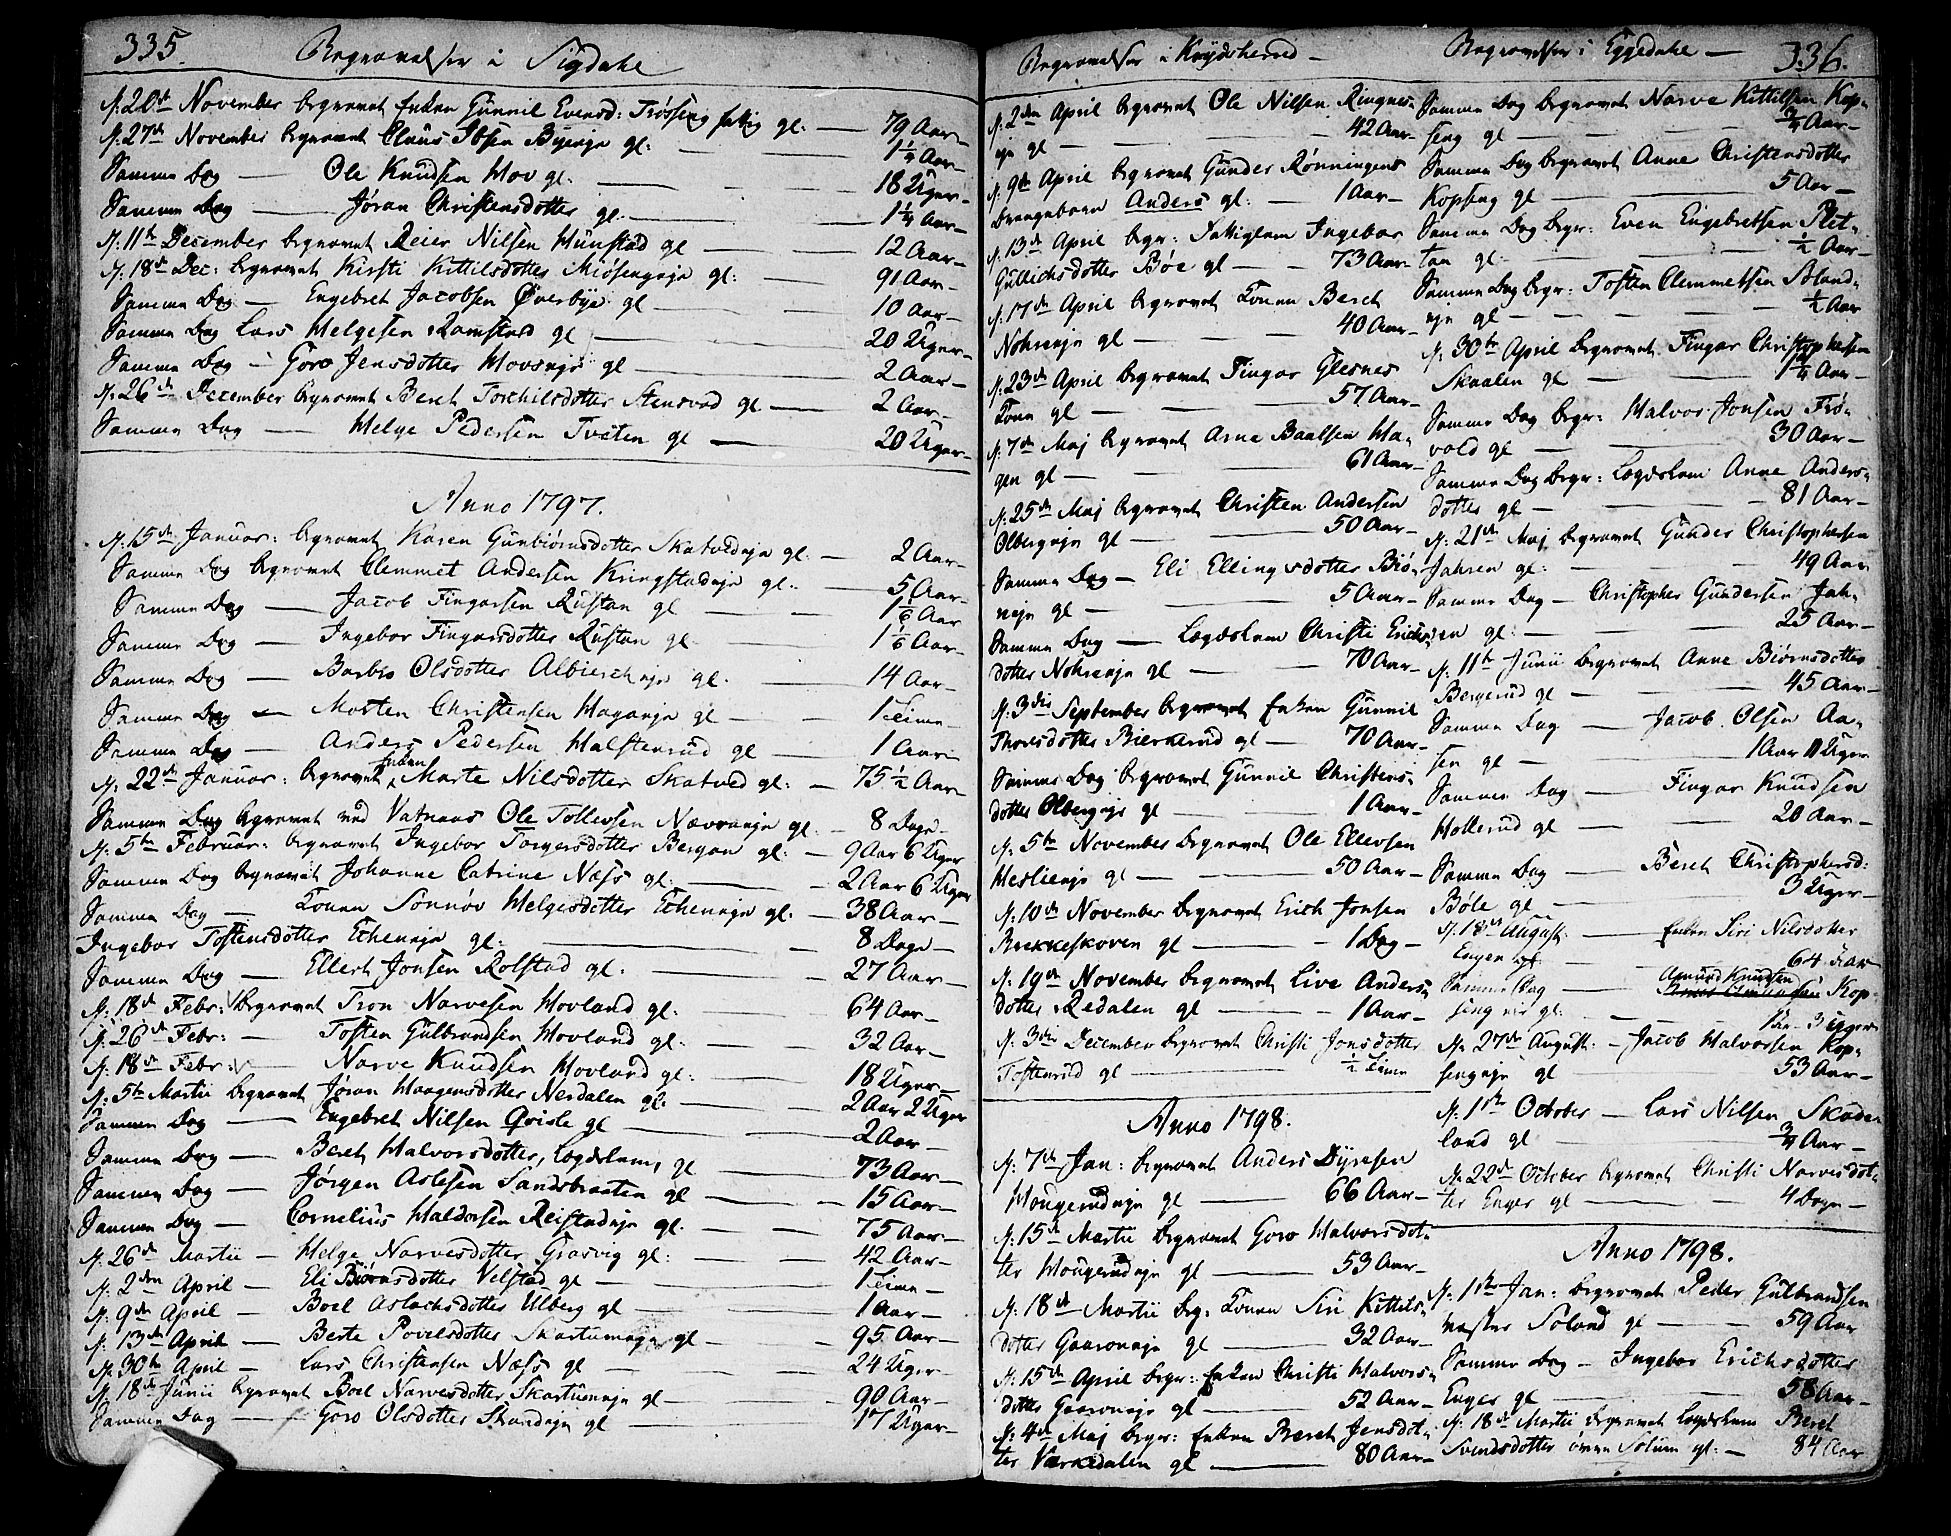 335.
Begravelser i Sigdahl
d: 20de November begravet Enken Gunnil Evensd: Trøsseng fattig gl: — 79 Aar
d: 27de November begravet Claus Ibsen Byenje gl: — 1 1/4 Aar
Samme Dag — Ole Knudsen Hov gl. — 18 Uger
Samme Dag — Jøran Christensdotter gl. — 1 1/4 Aar
d: 11te December begravet Reier Nilsen Hunstad gl — 12 Aar
d: 18de Dec: begravet Kirsti Kittilsdotter Miøsengeje gl: — 91 Aar
Samme Dag — Engebret Jacobsen Øverbye gl — 10 Aar
Samme Dag Lars Helgesen Ramstad gl — 20 Uger
Samme Dag — Goro Jensdotter Hovseje gl — 2 Aar
d: 26de December begravet Beret Torchilsdotter Stensvad gl — 2 Aar
Samme Dag — Helge Pedersen Tveten gl — 20 Uger
Anno 1797.
d: 15de Januar: begravet Karen Gunbiørnsdotter Skatvedeje gl: — 2 Aar
Samme Dag begravet Clemmet Andersen Kringstadeje gl: — 5 Aar
Samme Dag — Jacob Fingarsen Rustan gl — 1 1/6 Aar
Samme Dag — Ingebor Fingarsdotter Rustan gl — 1 1/6 Aar
Samme Dag — Barbro Olsdotter Albiercheje gl. — 14 Aar
Samme Dag — Morten Christensen Haganeje gl — 1 Time
Samme Dag — Anders Pedersen Halstenrud gl — 1 Aar
d: 22de Januar: begravet Enken Marte Nilsdotter Skatved gl: — 75 1/2 Aar
Samme Dag begravet ved Vatnaas Ole Tollevsen Nævraeje gl. — 8 Dage
d: 5te Februar: begravet Ingebor Torgersdotter Bergan gl: — 9 Aar 6 Uger
Samme Dag begravet Johanne Catrine Næss gl: — 2 Aar 6 Uger
Samme Dag — Konen Sønnøv Helgesdotter Echerneje gl: — 38 Aar
Ingebor Tostensdotter Echerneje gl: — 8 Dage
Samme Dag — Ellert Jonsen Rolstad gl: — 27 Aar
d: 18de Febr: begravet Tron Narvesen Hovland gl: — 64 Aar
d: 26de Febr: — Tosten Gulbrandsen Hovland gl: — 32 Aar
d: 18de Febr: — Narve Knudsen Hovland gl: — 18 Uger
d: 5te Martii begravet Jøran Haagensdotter Nerdalen gl: — 2 Aar 2 Uger
Samme Dag — Engebret Nilsen Qvisle gl — 2 Aar
Samme Dag — Beret Halvorsdotter, Lægdslem, gl — 73 Aar
Samme Dag — Jørgen Aslesen Sandsbraaten gl — 15 Aar
Samme Dag — Cornelius Haldorsen Reistadeje gl. — 75 Aar
d: 26de Martii — Helge Narvesdotter Grasvig gl: — 42 Aar
d: 2den April — Eli Biørnsdotter Velstad gl — 1 Time
d: 9de April — Boel Aslachsdotter Ulberg gl — 1 Aar
d: 13de April — Berte Povelsdotter Skartumeje gl — 95 Aar
d: 30te April — Lars Christensen Næss gl — 24 Uger
d: 18de Junii begravet Boel Narvesdotter Skartumeje gl — 90 Aar
Samme Dag — Goro Olsdotter Strandeje gl — 17 Uger
Begravelser i Krydsherred —
d: 2den April begravet Ole Nilsen Ringnes-
eje gl — 42 Aar
d: 9de April begravet Gunder Rønningens
Drengebarn Anders gl: — 1 Aar
d: 13de April begr: Fattiglem Ingebor
Gulichsdotter Bøe gl — 73 Aar
d: 17de April begravet Konen Beret
Nohreeje gl — 40 Aar
d: 23de April begravet Fingar Glesnes
Konen gl — 57 Aar
d: 7de Maj begravet Arne Baalsen Ha-
gen gl — 61 Aar
d: 25de Maj begravet Christen Andersen
Olbergeje gl — 50 Aar
Samme Dag — Eli Ellingsdotter Biø-
reeje gl — 5 Aar
Samme Dag — Lægdslem Christi Erichs-
dotter Nohreeje gl — 70 Aar
d: 3die September begravet Enken Gunnil
Thoresdotter Bierkerud gl — 70 Aar
Samme Dag begravet Gunnil Christens-
dotter Olbergeje gl — 1 Aar
d: 5te November begravet Ole Ellevsen
Heslieeje gl — 50 Aar
d: 10de November begravet Erich Jonsen
Brekkeskoven gl — 1 Dag
d: 19de November begravet Live Anders-
dotter Redalen gl — 1 Aar
d: 3die December begravet Christi Jonsdotter
Tostenrud gl — 1/2 Time
Anno 1798.
d: 7de Jan: begravet Anders Dyresen
Hougerudeje gl — 66 Aar
d: 15de Martii begravet Goro Halvorsdot-
ter Hougerudeje gl — 53 Aar
d: 18de Martii beg: Konen Siri Kittils-
dotter Gaaraneje gl — 32 Aar
d: 15de April begr: Enken Christi Halvors-
dotter Gaaraneje gl — 52 Aar
d: 4de Maj begr: Enken Beret Jensdot-
ter Værkedalen gl — 80 Aar
Begravelser i Eggedahl —
336.
Samme Dag begravet Narve Kittilsen Kop-
seng gl — 3/4 Aar
Samme Dag begravet Anne Christensdotter
Kopseng gl — 5 Aar
Samme Dag begr: Even Engebretsen Plet-
tan gl. — 1/2 Aar
Samme Dag begr: Tosten Clemmetsen Soland-
eje gl — 1/2 Aar
d: 30te April begravet Fingar Christophersen
Skaalen gl — 1 1/4 Aar
Samme Dag begr: Halvor Jonsen Frø-
vold gl — 30 Aar
Samme Dag begr: Lægdslem Anne Anders-
dotter gl — 81 Aar
d: 21de Maj begravet Gunder Christophersen
Jahren gl: — 49 Aar
Samme Dag — Christopher Gundersen Jah-
ren gl: — 25 Aar
d: 11te Junii begravet Anne Biørnsdotter
Bergerud gl — 45 Aar
Samme Dag — Jacob Olsen Aa-
sen gl — 1 Aar 11 Uger
Samme Dag — Fingar Knudsen
Hollerud gl — 20 Aar
Samme Dag — Beret Christophersd:
Bøle gl — 3 Uger
d: 18de August: — Enken Siri Nilsdotter
Enger gl — 64 Aar
Samme Dag — Asmund Knudsen Kop-
seng eie gl: — 1 Aar 3 Uger
d: 27de August: — Jacob Halvorsen Kop-
sengeje gl — 53 Aar
d: 1ste October — Lars Nilsen Skade-
land gl — 3/4 Aar
d: 22de October begravet Christi Narvesdot-
ter Enger gl — 4 Dage
Anno 1798.
d: 1ste Jan: begravet Peder Gulbrandsen
Soland gl — 59 Aar
Samme Dag — Ingebor Erichsdotter
Enger gl — 58 Aar
d: 18de Martii begravet Lægdslem Beret
Svendsdotter øvre Solum gl: — 84 Aar